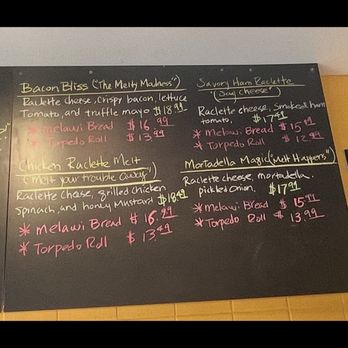 Bacon Bliss ("The Melty Madness")
Raclette cheese, Crispy bacon, lettuce
Tomato, and truffle mayo $18.99
* Melawi Bread $16.99
* Torpedo Roll $13.99
Savory Ham Raclette
(Say cheese")
Raclette cheese, Smoked ham
tomato. $17.49
* Melawi Bread $15.49
* Torpedo Roll $12.99
Chicken Raclette Melt
(Melt your trouble away)
Raclette cheese, grilled chicken
Spinach, and honey Mustard $18.49
* Melawi Bread $16.49
* Torpedo Roll $13.49
Mortadella Magic ("Melt Happens")
Raclette cheese, mortadella.
pickled onion. $17.99
* Melawi Bread $15.99
* Torpedo Roll $13.99